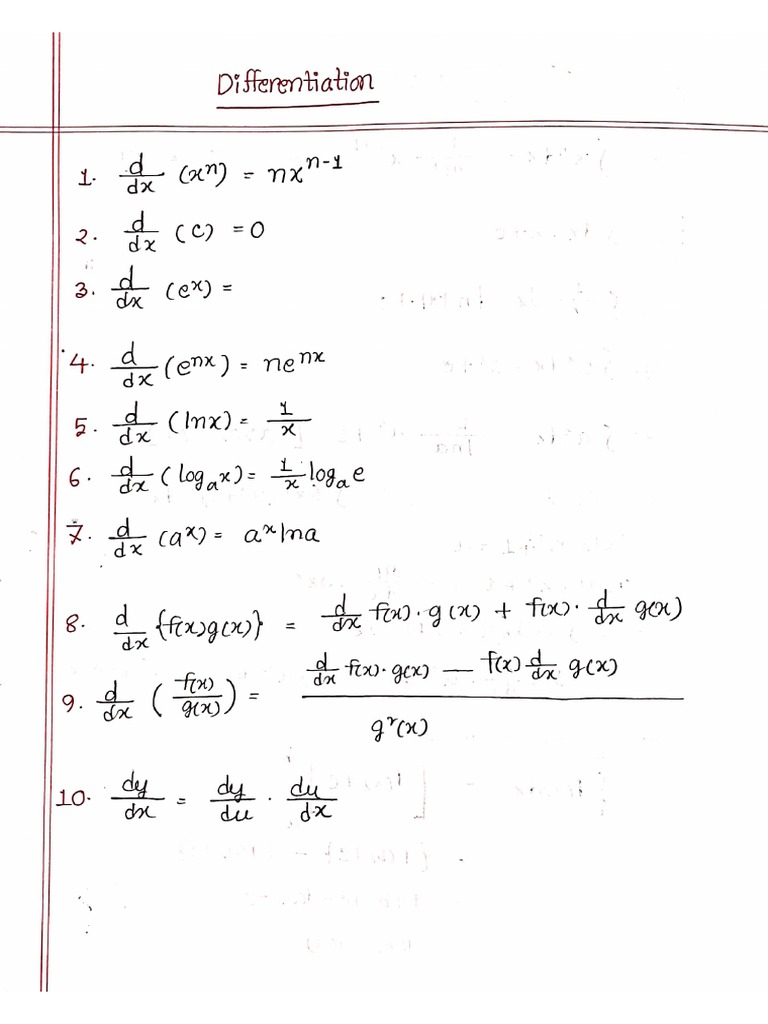 Differentiation
1. d/dx (xⁿ) = nxⁿ⁻¹
2. d/dx (c) = 0
3. d/dx (eˣ) =
4. d/dx (eⁿˣ) = neⁿˣ
5. d/dx (lnx) = 1/x
6. d/dx (logₐx) = 1/x logₐe
7. d/dx (aˣ) = aˣlna
8. d/dx {f(x)g(x)} = d/dx f(x)·g(x) + f(x)· d/dx g(x)
9. d/dx (f(x)/g(x)) = (d/dx f(x)·g(x) — f(x) d/dx g(x)) / g²(x)
10. dy/dx = dy/du · du/dx